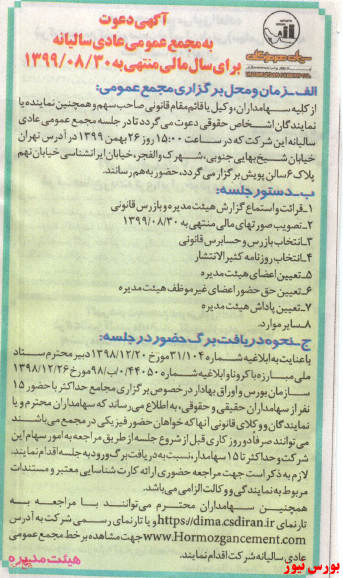 آگهی دعوت
به مجمع عمومی عادی سالیانه
برای سال مالی منتهی به ۱۳۹۹/۰۸/۳۰
سیمان هرمزگان
HORMOZGAN CEMENT CO.
الف-زمان و محل برگزاری مجمع عمومی:
از کلیه سهامداران، وکیل یا قائم مقام قانونی صاحب سهم و همچنین نماینده یا
نمایندگان اشخاص حقوقی دعوت می گردد تا در جلسه مجمع عمومی عادی
سالیانه این شرکت که در ساعت ۱۵:۰۰ روز ۲۶ بهمن ۱۳۹۹ در آدرس تهران
خیابان شیخ بهایی جنوبی، شهرک والفجر، خیابان ایرانشناسی خیابان نهم
پلاک ۶ سالن پویش برگزار می گردد، حضور به هم رسانند.
ب-دستور جلسه:
۱-قرائت و استماع گزارش هیئت مدیره و بازرس قانونی
۲-تصویب صورتهای مالی منتهی به ۱۳۹۹/۰۸/۳۰
۳-انتخاب بازرس و حسابرس قانونی
۴-انتخاب روزنامه کثیرالانتشار
۵-تعیین اعضای هیئت مدیره
۶-تعیین حق حضور اعضای غیر موظف هیئت مدیره
۷-تعیین پاداش هیئت مدیره
۸-سایر موارد.
ج-نحوه دریافت برگ حضور در جلسه:
با عنایت به ابلاغیه شماره ۳۱/۱۰۴ مورخ ۱۳۹۸/۱۲/۲۰ دبیر محترم ستاد
ملی مبارزه با کرونا و ابلاغیه شماره ۰۴۴۰۵۰/ب/۹۸ مورخ ۱۳۹۸/۱۲/۲۶
سازمان بورس و اوراق بهادار در خصوص برگزاری مجامع حداکثر با حضور ۱۵
نفر از سهامداران حقیقی و حقوقی، به اطلاع می رساند که سهامداران محترم و یا
نمایندگان و وکلای قانونی آنها که خواهان حضور فیزیکی در مجمع می باشند
می توانند صرفا دو روز کاری قبل از شروع جلسه از طریق مراجعه به امور سهام این
شرکت و حداکثر تا ۱۵ سهامدار، نسبت به دریافت برگ ورود به جلسه اقدام نمایند.
لازم به ذکر است جهت مراجعه حضوری ارائه کارت شناسایی معتبر و مستندات
مربوط به نمایندگی و وکالت الزامی می باشد.
همچنین سهامداران محترم می توانند با مراجعه به
تارنمای https://dima.csdiran.ir و یا تارنمای رسمی شرکت به آدرس
www.Hormozgancement.com جهت مشاهده بر خط مجمع عمومی
عادی سالیانه شرکت اقدام نمایند.
هیئت مدیره
بورس نیوز